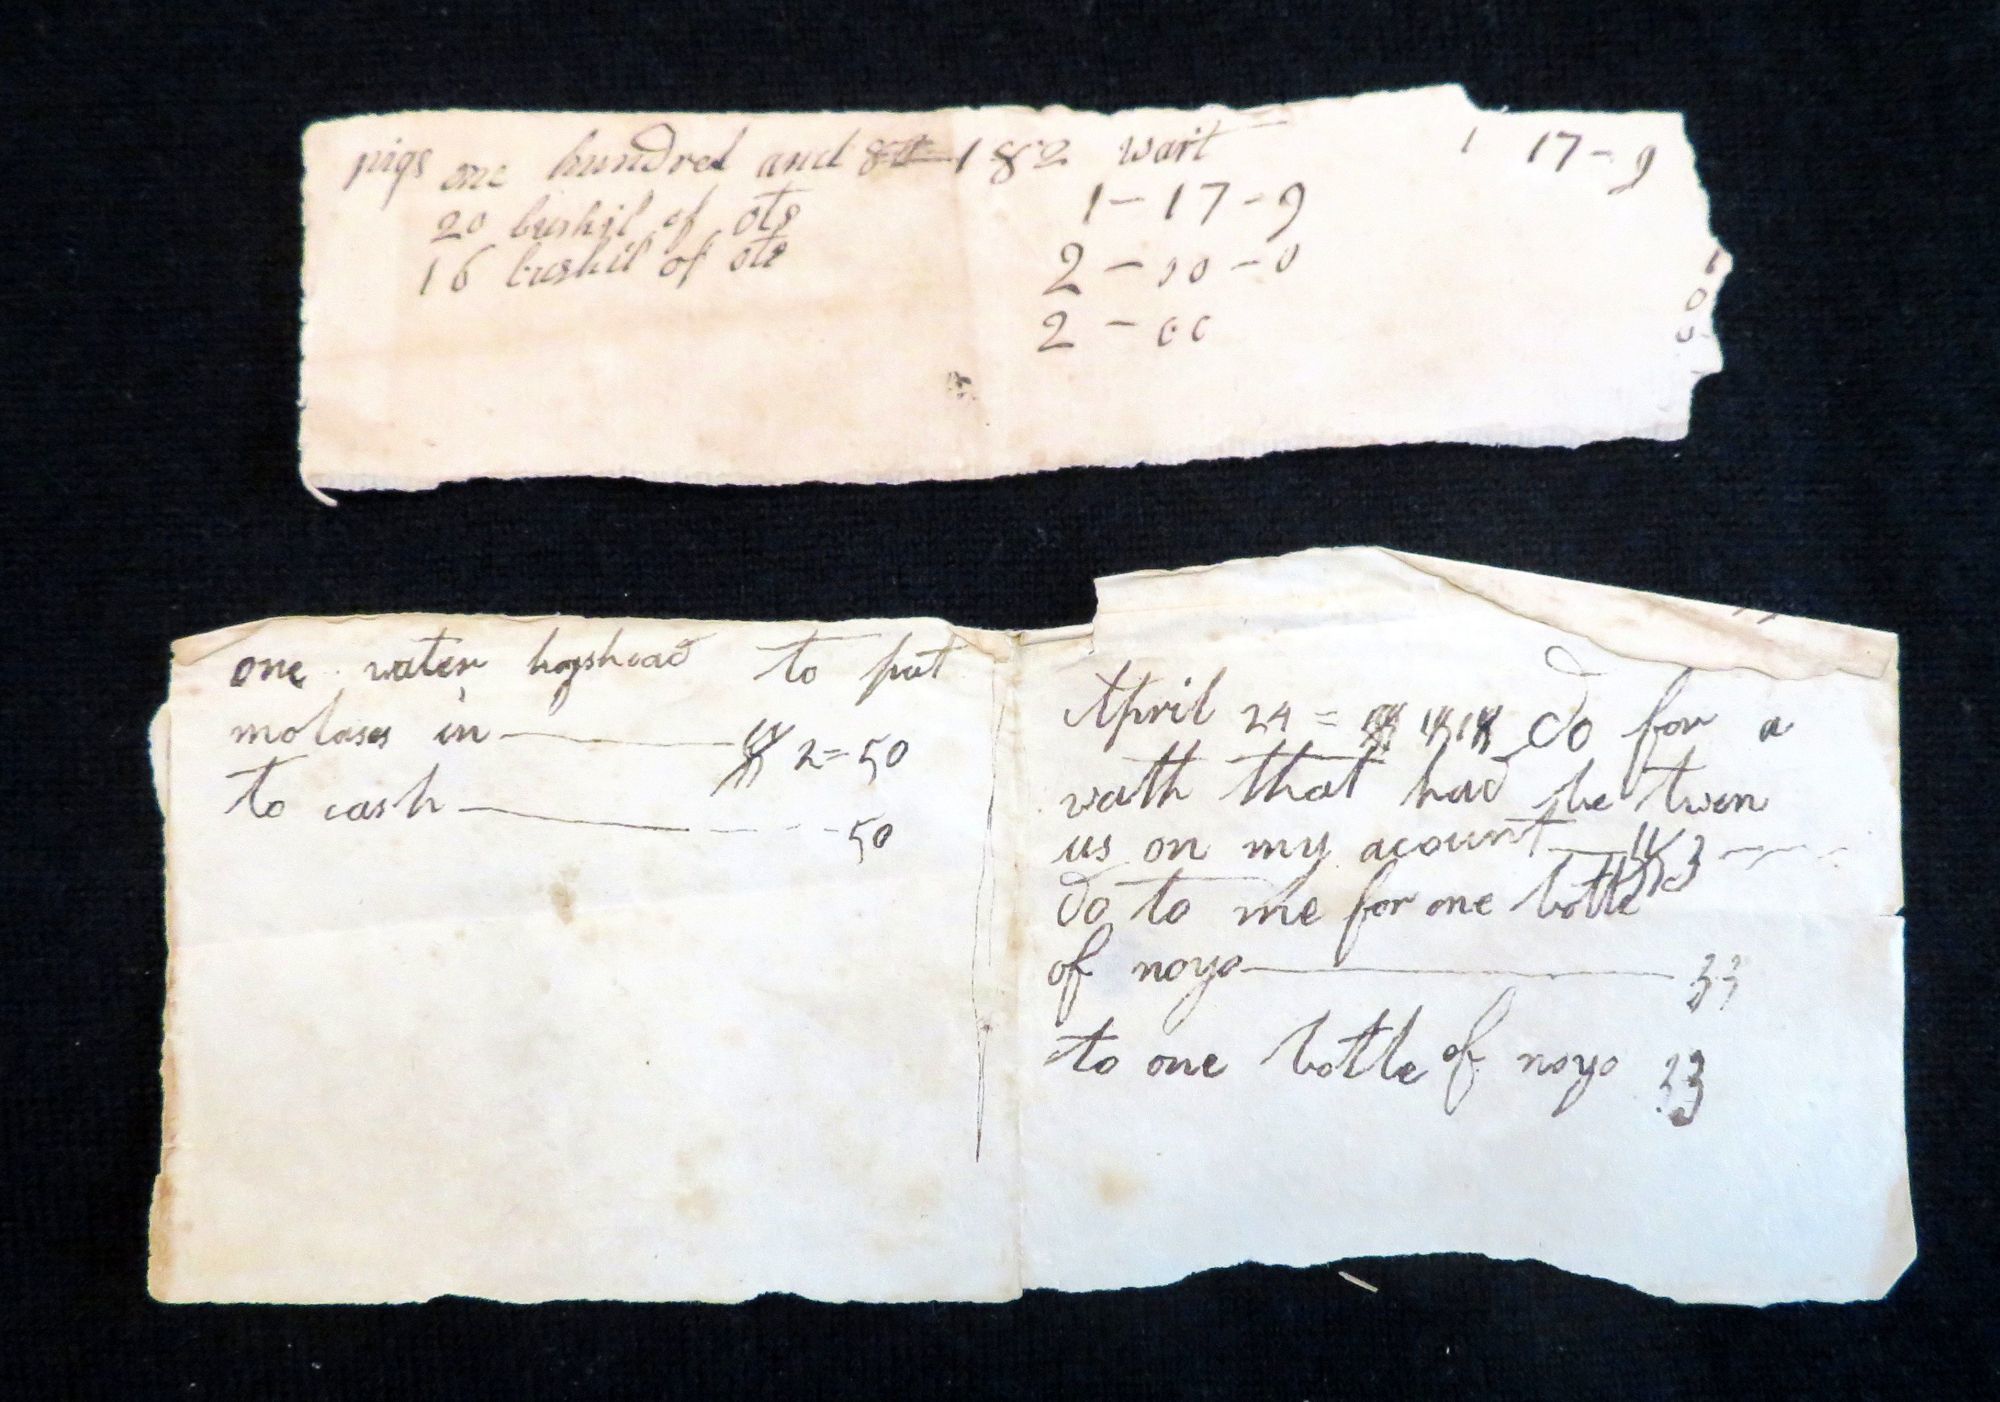 pigs one hundred and 182 wait 1 17-9
20 bushil of ots 1-17-9
16 bushil of ots 2-00-0
2-00
one water hogshead to put
molases in $2=50
to cash 50
April 24= do for a
wath that had be twen
us on my acount $3
do to me for one botle
of noyo 33
to one botle of noyo 33